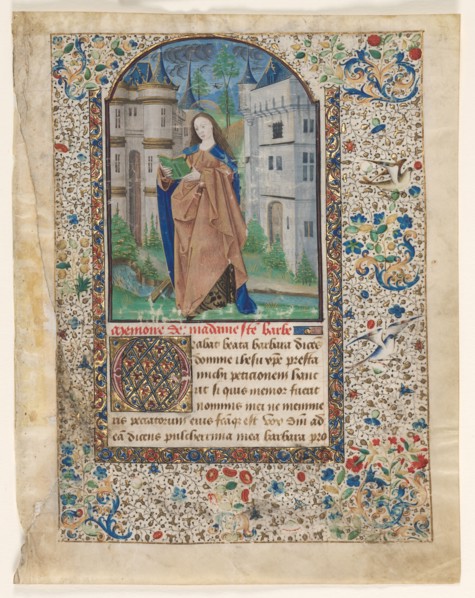 memoire de madame ste barbe
Orabat beata barbara dicens
domine ihesu xpe presta
michi peticionem hanc
ut si quis memor fuerit
nominis mei ne memine
ris peccatorum eius
ea dicens pulcherrima mea barbara pro